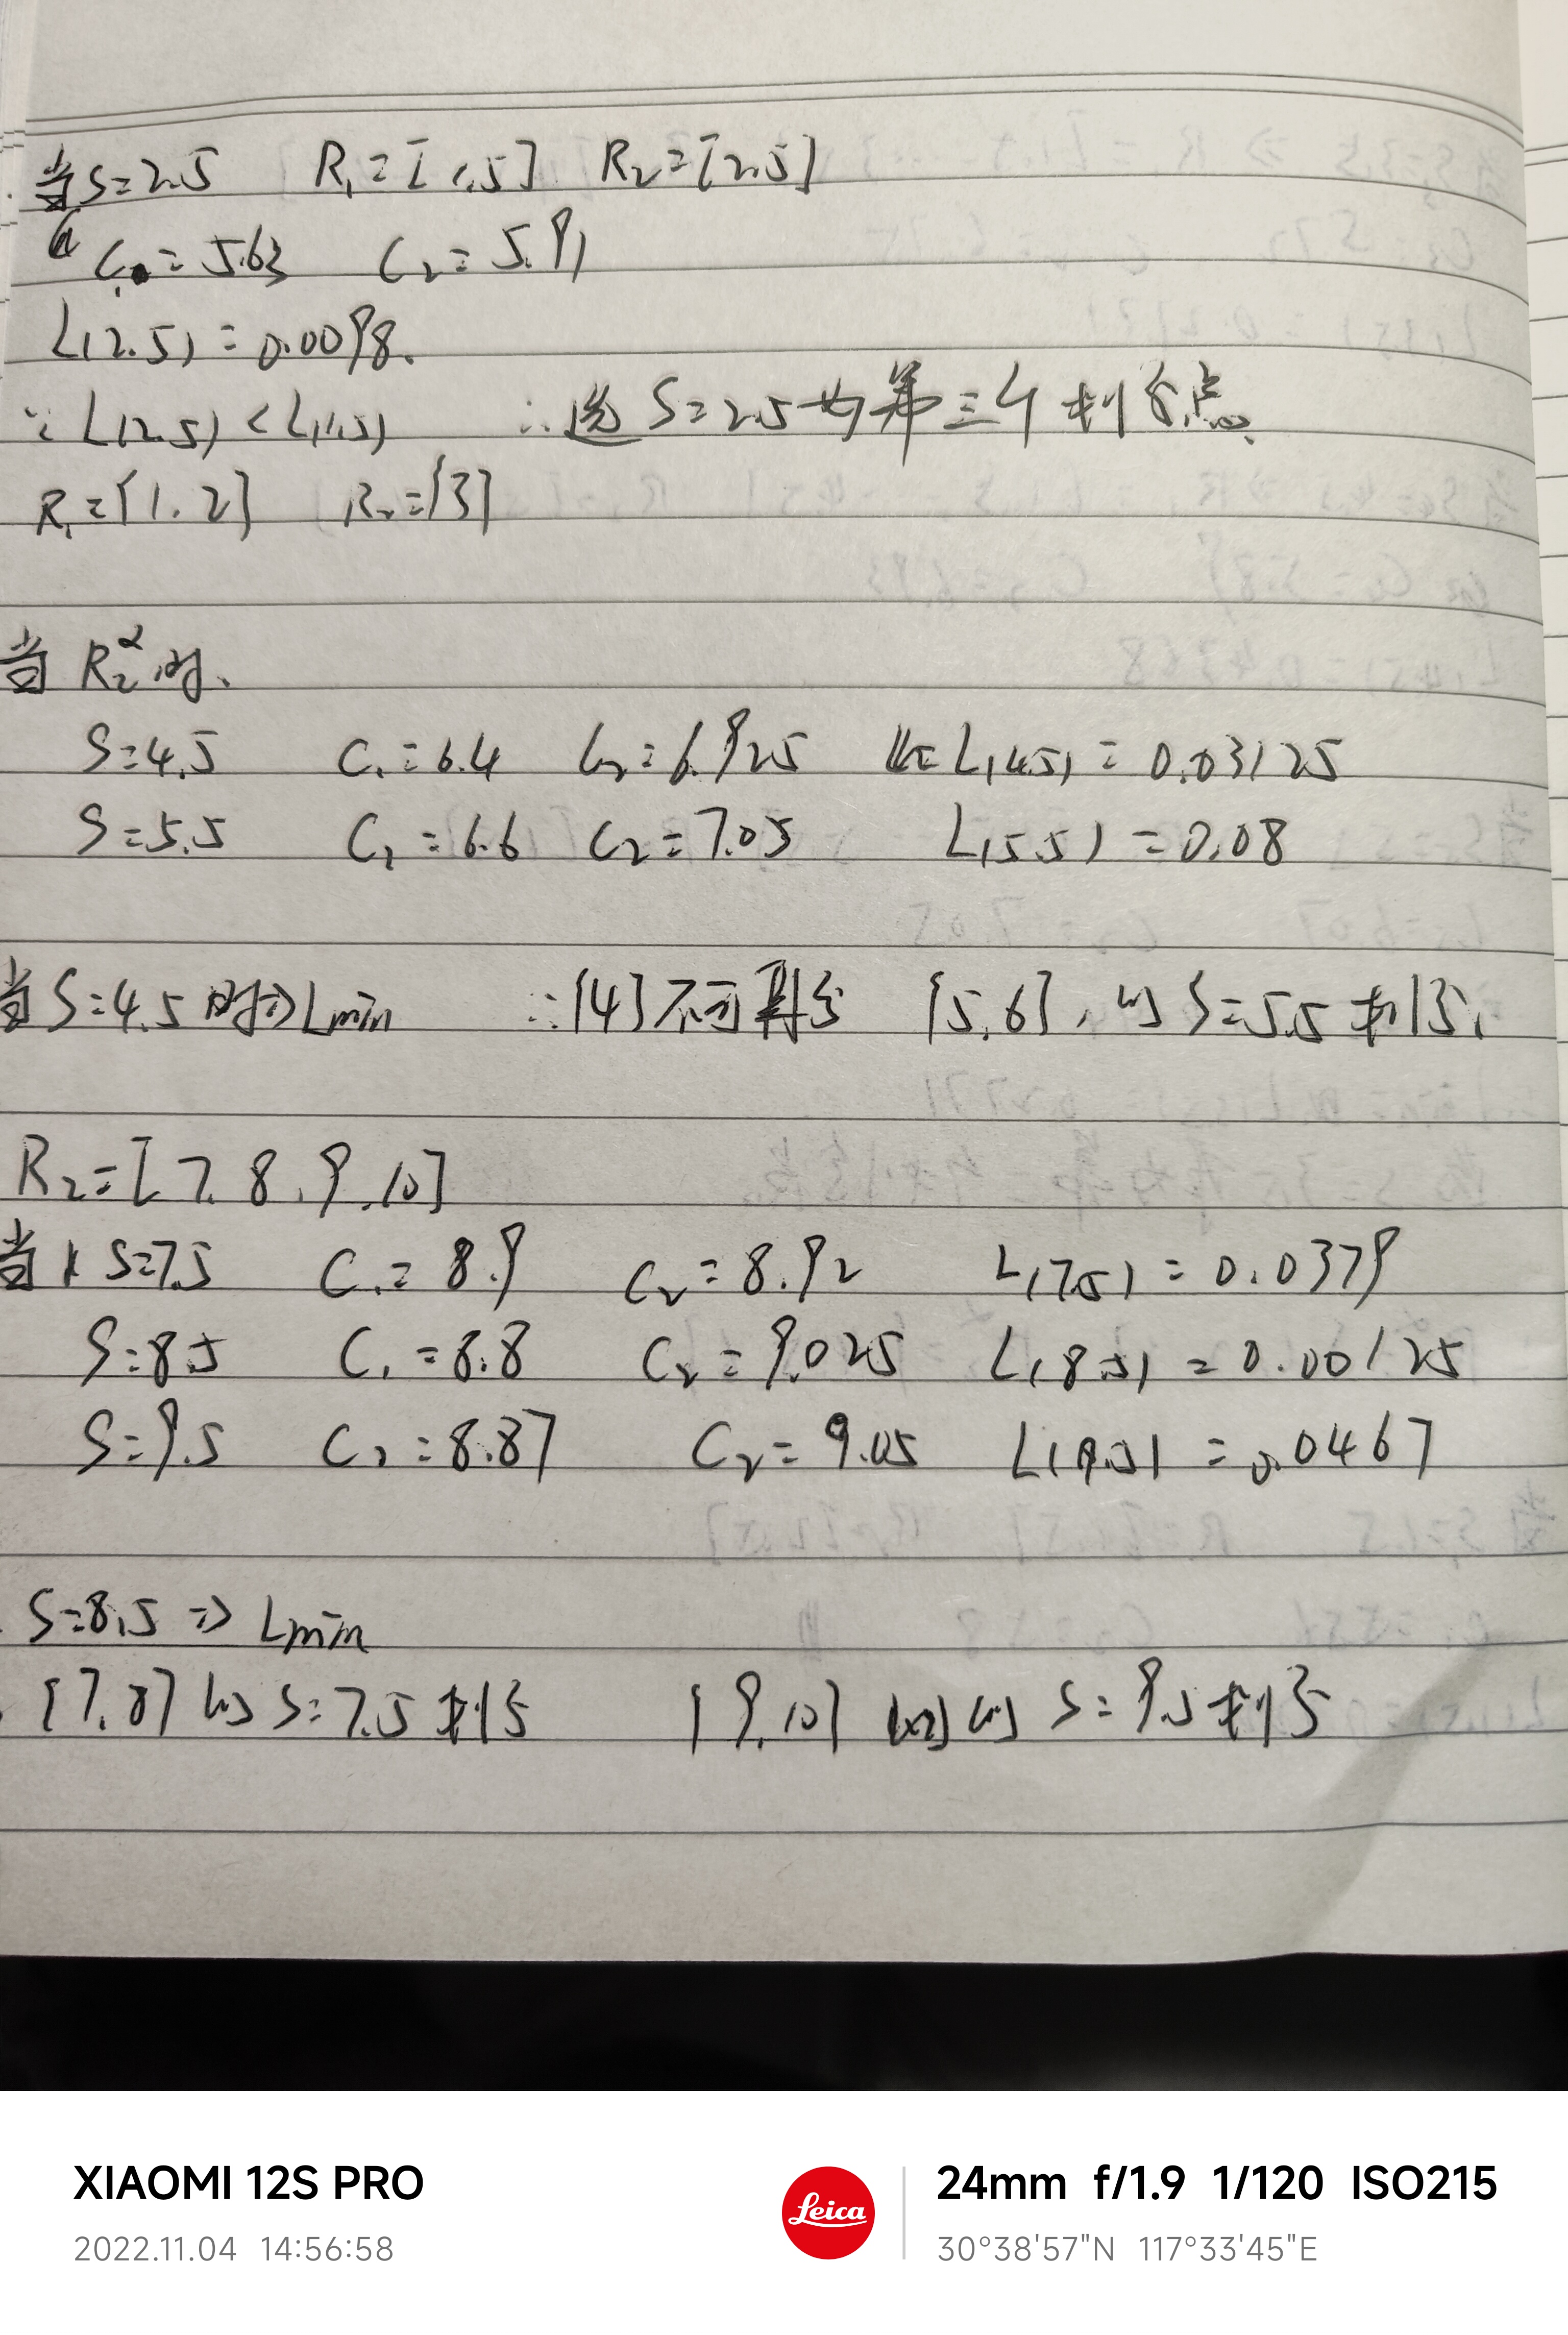 当S=2.5 R₁=[1.5] R₂=[2.5]
C₁=5.63 C₂=5.91
L(2.5)=0.0098.
∵L(2.5)<L(1.5) ∴选S=2.5为第三个划分点.
R₁=[1.2] R₂=[3]
当R₂时、
S=4.5 C₁=6.4 C₂=6.925 L(4.5)=0.03125
S=5.5 C₁=6.6 C₂=7.05 L(5.5)=0.08
当S=4.5时⇒Lmin ∴[4]不可再分 [5.6],以S=5.5划分,
R₂=[7.8.9.10]
当S=7.5 C₁=8.9 C₂=8.92 L(7.5)=0.0379
S=8.5 C₁=8.8 C₂=9.025 L(8.5)=0.00125
S=9.5 C₁=8.87 C₂=9.05 L(9.5)=0.0467
S=8.5⇒Lmin
[7.8]以S=7.5划分 [9.10]以S=9.5划分
XIAOMI 12S PRO
2022.11.04 14:56:58
Leica
24mm f/1.9 1/120 ISO215
30°38'57"N 117°33'45"E